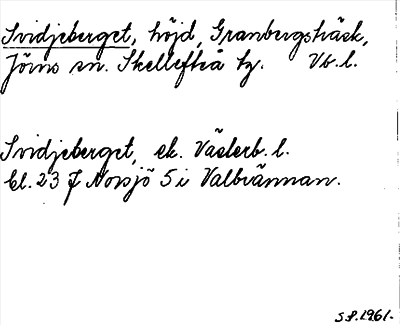 Svidjeberget, höjd, Granbergsträsk,
Jörns sn. Skellefteå tg. Vb.l.
Svidjeberget, ek. Västerb. l.
bl. 23 J Norsjö 5 i Valbrännan.
S.P. 1961.